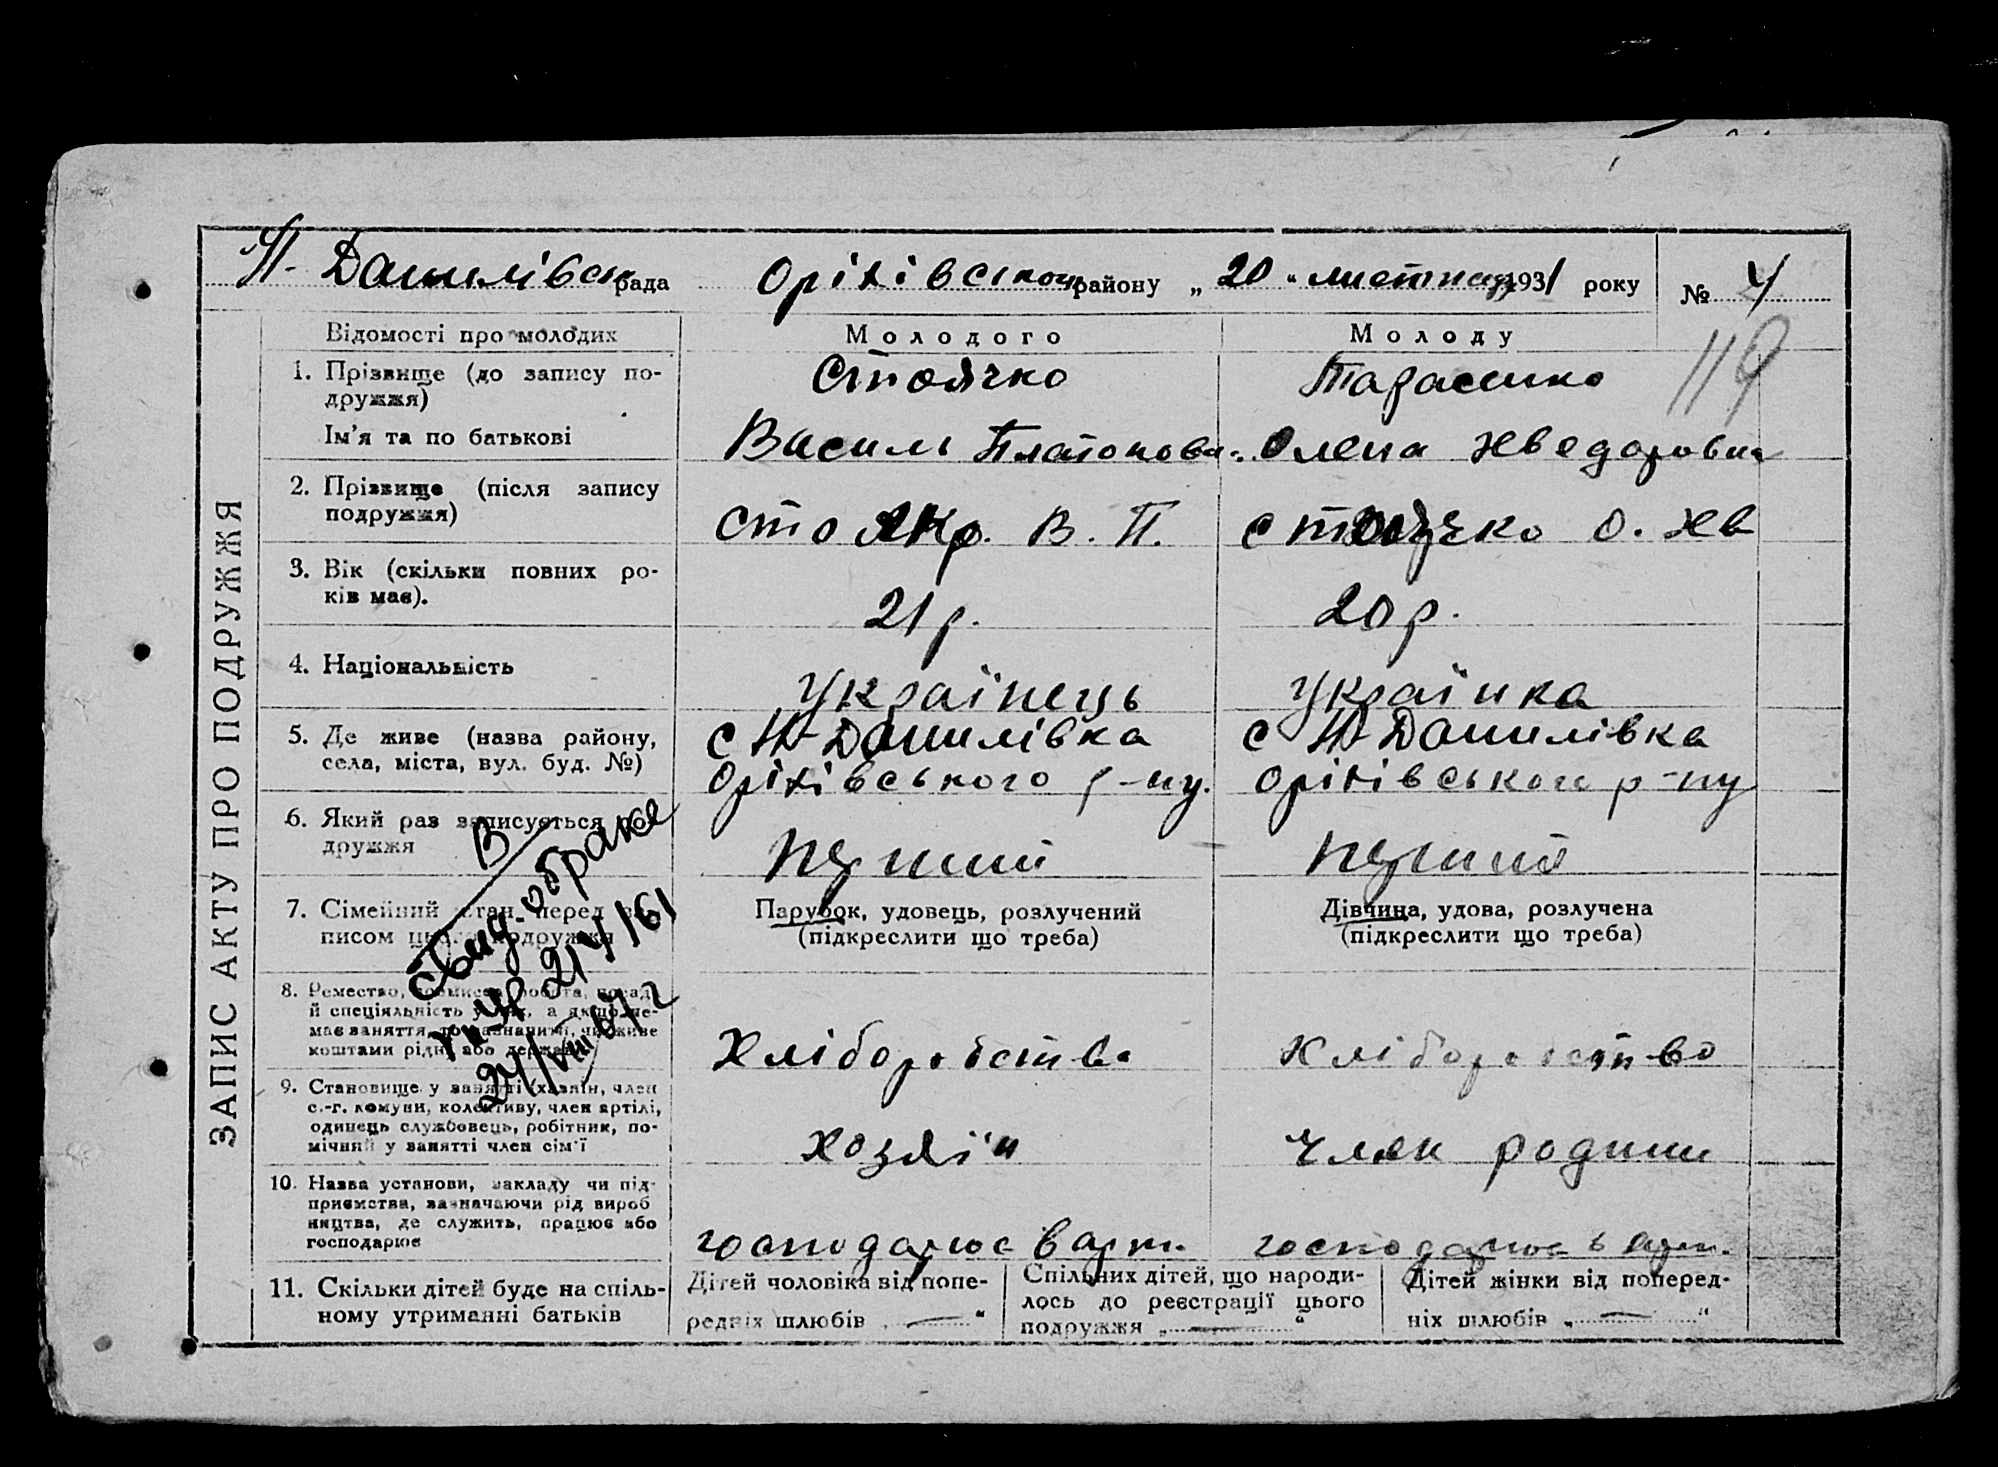 Данилівськ рада Оріхівського району „20“ листопад 1931 року № 4
119
ЗАПИС АКТУ ПРО ПОДРУЖЖЯ
Відомості про молодих
Молодого
Молоду
1. Прізвище (до запису по-
дружжя)
Стоячко
Тарасенко
Ім'я та по батькові
Василь Платонови.
Олена Хведоровна
2. Прізвище (після запису
подружжя)
В. П.
Стоячко О. Хв
3. Вік (скільки повних ро-
ків має).
21 р.
20 р.
4. Національність
Українець
Українка
5. Де живе (назва району,
села, міста, вул. буд. №)
с Данилівка
Оріхівського р-ну.
с Данилівка
Оріхівського р-ну
6. Який раз записується по-
дружжя
перший
перший
7. Сімейний стан перед за-
писом цього подружжя
Парубок, удовець, розлучений
(підкреслити що треба)
Дівчина, удова, розлучена
(підкреслити що треба)
8. Ремество, промисел, робота, посада
й спеціяльність у них, а якщо не-
має заняття, то зазначити, чи живе
коштами рідні або держави
Хліборобство
Хліборобство
9. Становище у занятті (хазяїн, член
с.-г. комуни, колективу, член артілі,
одинець службовець, робітник, по-
мічний у занятті член сім'ї
хозяїн
член родини
10. Назва установи, закладу чи під-
приємства, зазначаючи рід вироб
ництва, де служить, працює або
господарює
господарює в арт.
господарює в арт.
11. Скільки дітей буде на спіль-
ному утриманні батьків
Дітей чоловіка від попе-
редніх шлюбів „—“
Спільних дітей, що народи-
лось до реєстрації цього
подружжя „—“
Дітей жінки від поперед-
ніх шлюбів „—“
В
свид о браке
214/61
24/VIII